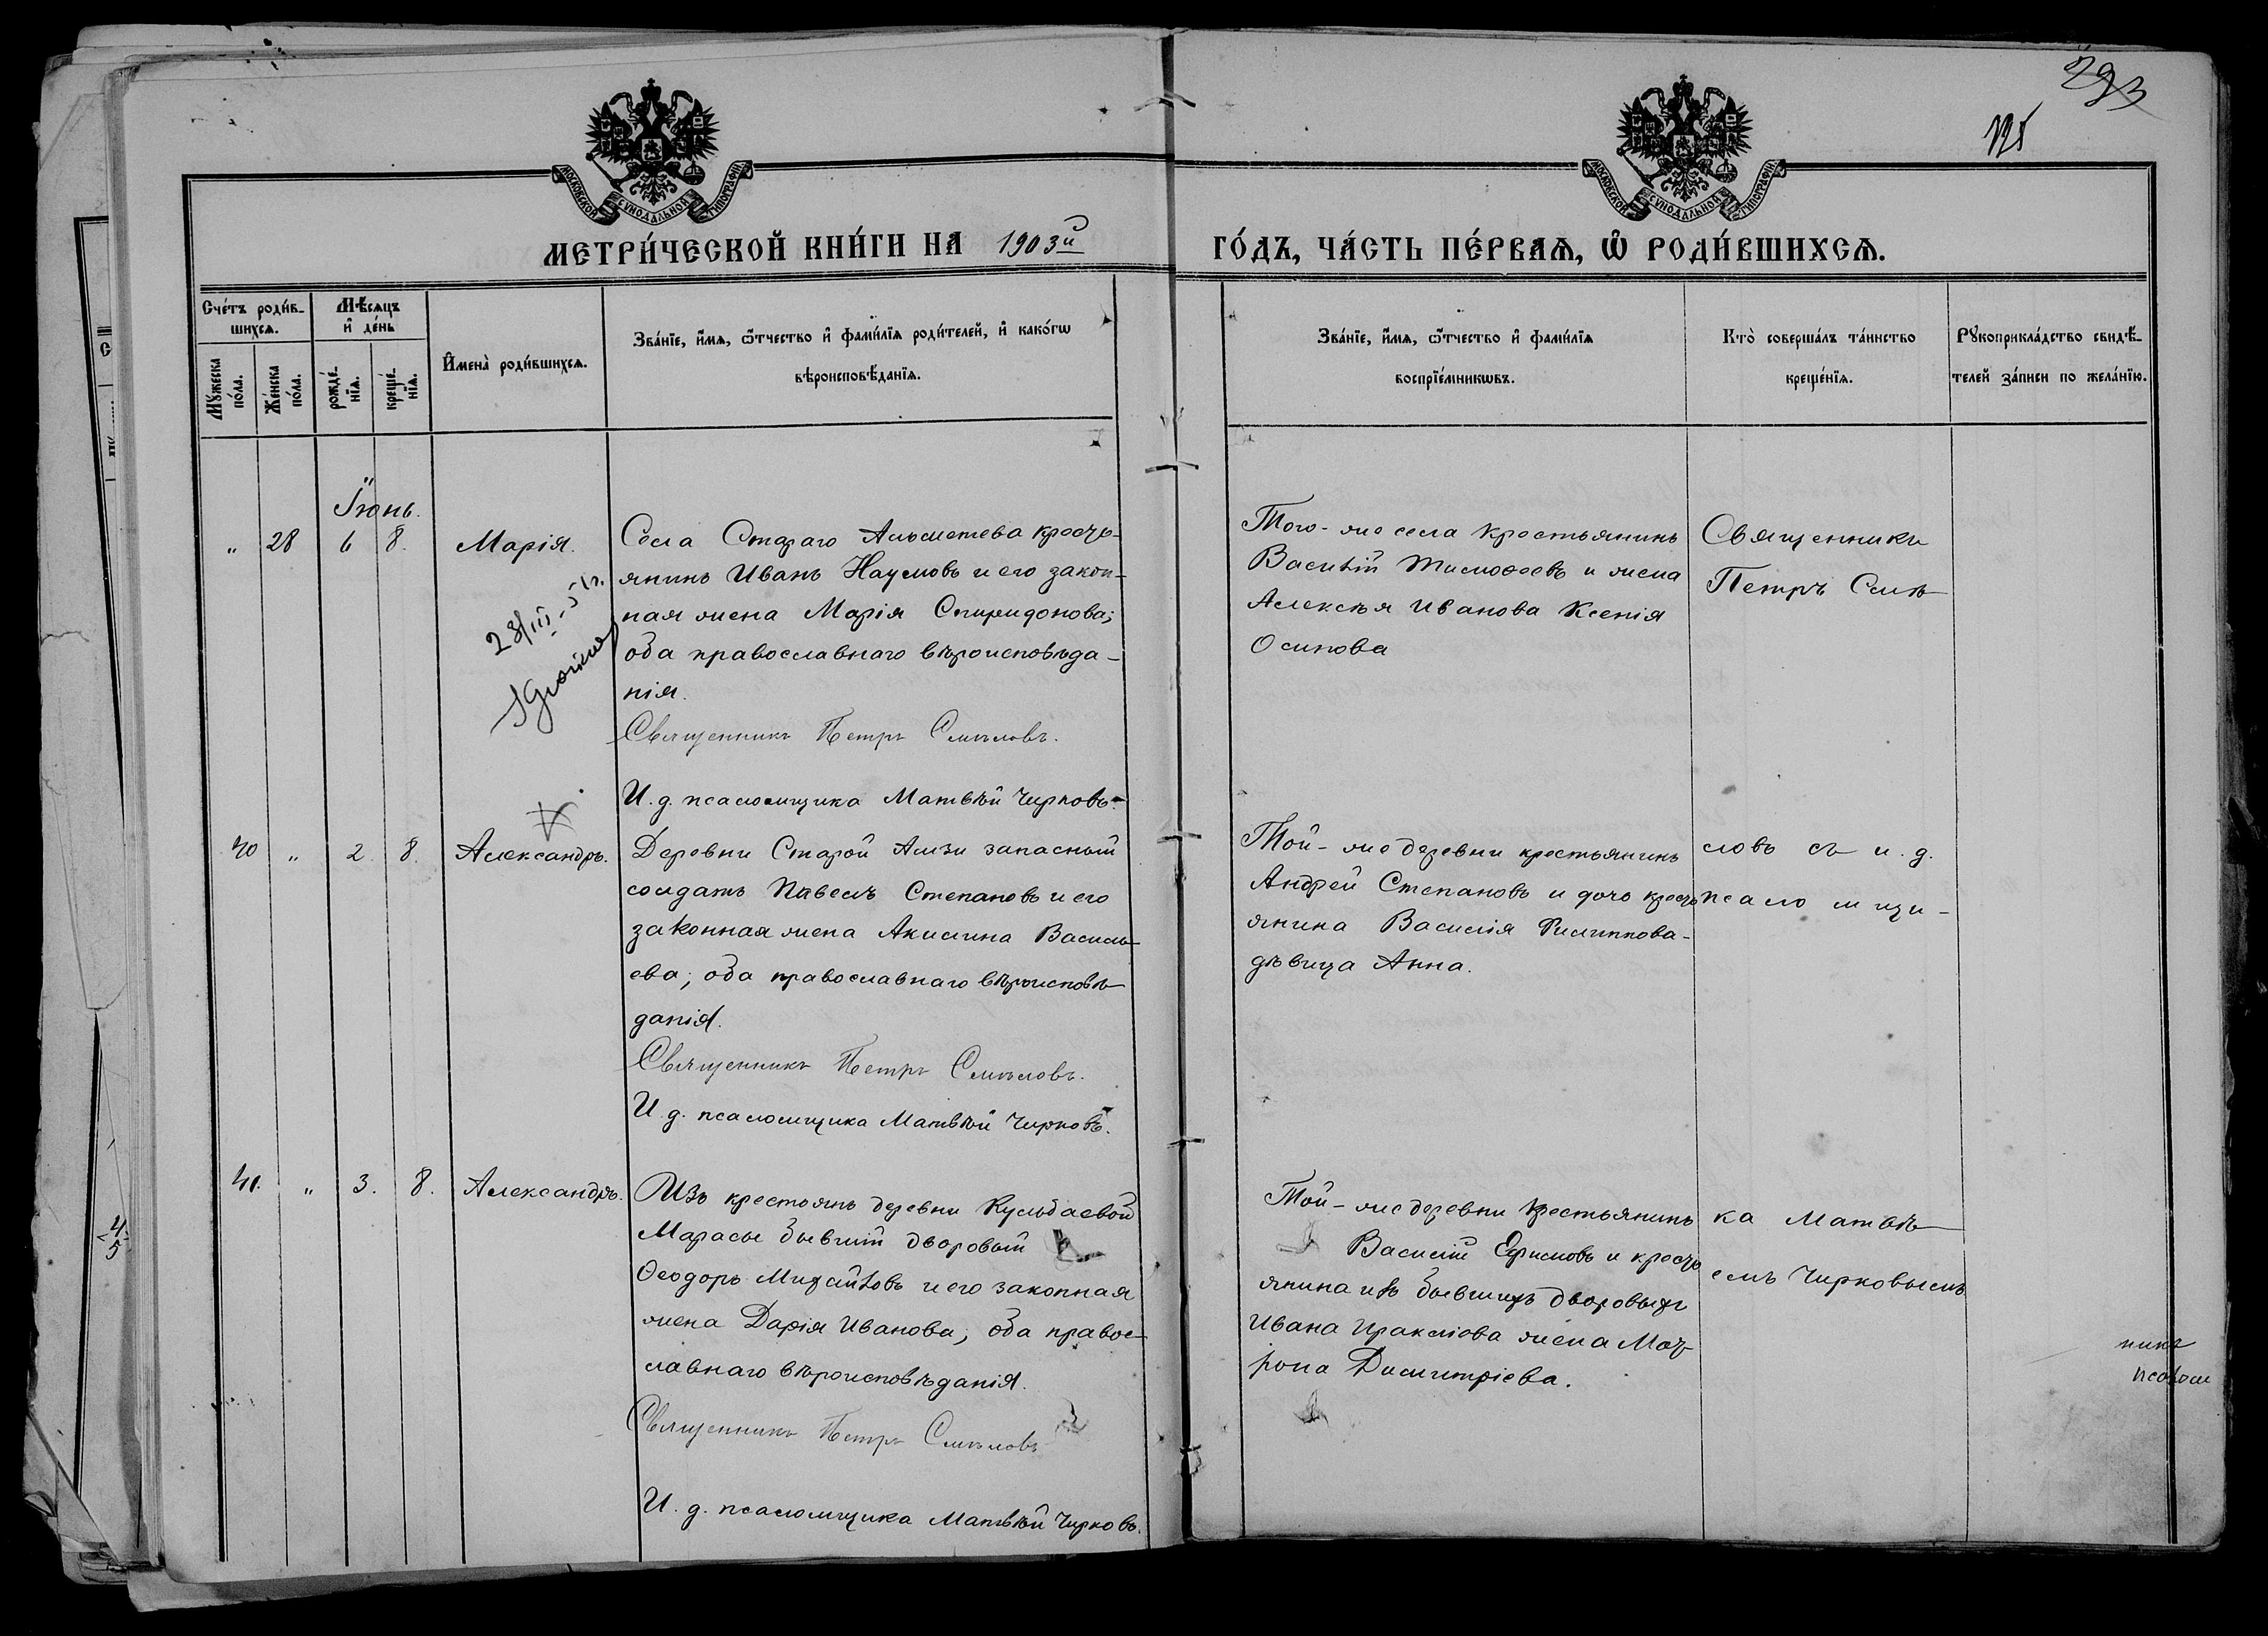 293
МОСКОВСКОЙ СУНОДАЛЬНОЙ ТИПОГРАФІИ
МОСКОВСКОЙ СУНОДАЛЬНОЙ ТИПОГРАФІИ
МЕТРИ́ЧЕСКОЙ КНИ́ГИ НА 1903й ГО́ДЪ, ЧА́СТЬ ПЕ́РВАѦ, Ѽ РОДИ́ВШИХСѦ.
Сче́тъ роди́в-
шихсѧ.
Мꙋжеска
по́ла.
Же́нска
по́ла.
Мѣ́сѧцъ
и҆ де́нь
рожде́-
нїѧ.
креще́-
нїѧ.
И҆мена̀ роди́вшихсѧ.
Зва́нїе, и҆́мѧ, ѻ҆́тчество и҆ фами́лїѧ роди́телей, и҆ како́гѡ
вѣроисповѣ́данїѧ.
Зва́нїе, и҆́мѧ, ѻ҆́тчество и҆ фами́лїѧ
воспрїе́мникѡвъ.
Кто̀ соверша́лъ та́инство
креще́нїѧ.
Рꙋкоприкла́дство свидѣ́-
телей за́писи по жела́нїю.
Іюнь.
" 28 6 8. Марія.
28/III-51г.
Села Стараго Альметева кресть-
янинъ Иванъ Наумовъ и его закон-
ная жена Марія Спиридонова;
оба православнаго вѣроисповѣда-
нія.
Священникъ Петръ Смѣловъ.
И. д. псаломщика Матвѣй Чирковъ.
Того-же села крестьянинъ
Василій Тимофеевъ и жена
Алексѣя Иванова Ксенія
Осипова
Священникъ
Петръ Смѣ-
40 " 2. 8. Александръ.
Деревни Старой Амзи запасный
солдатъ Павелъ Степановъ и его
законная жена Акилина Василь-
ева; оба православнаго вѣроисповѣ-
данія.
Священникъ Петръ Смѣловъ.
И. д. псаломщика Матвѣй Чирковъ.
Той-же деревни крестьянинъ
Андрей Степановъ и дочь кресть
янина Василія Филиппова-
дѣвица Анна.
ловъ съ и. д.
псаломщи-
41. " 3. 8. Александръ.
Изъ крестьянъ деревни Кульбаевой
Марасы бывшій дворовый
Ѳеодоръ Михайловъ и его законная
жена Дарія Иванова; оба правос-
лавнаго вѣроисповѣданія.
Священникъ Петръ Смѣловъ
И. д. псаломщика Матвѣй Чирковъ.
Той-же деревни крестьянинъ
Василій Ефимовъ и кресть
янина изъ бывшихъ дворовыхъ
Ивана Ираклiова жена Мат-
рона Димитріева.
ка Матвѣ-
емъ Чирковымъ
никъ
псалом
4
5